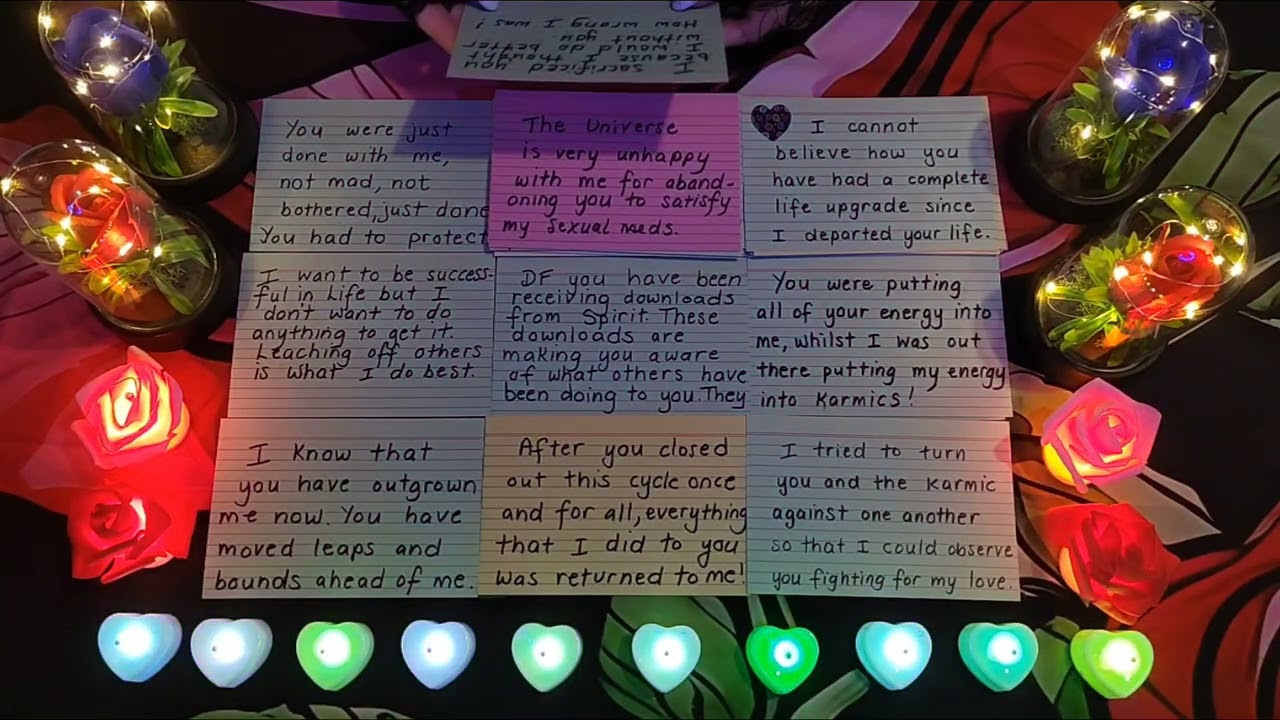 I sacrificed you
because I thought
I would do better
without you.
How wrong I was !
You were just
done with me,
not mad, not
bothered, just done
You had to protect
The Universe
is very unhappy
with me for aband-
oning you to satisfy
my sexual needs.
I cannot
believe how you
have had a complete
life upgrade since
I departed your life.
I want to be success-
ful in Life but I
don't want to do
anything to get it.
Leaching off others
is what I do best.
DF you have been
receiving downloads
from Spirit. These
downloads are
making you aware
of what others have
been doing to you. They
You were putting
all of your energy into
me, whilst I was out
there putting my energy
into Karmics!
I Know that
you have outgrown
me now. You have
moved leaps and
bounds ahead of me.
After you closed
out this cycle once
and for all, everything
that I did to you
was returned to me!
I tried to turn
you and the Karmic
against one another
so that I could observe
you fighting for my love.